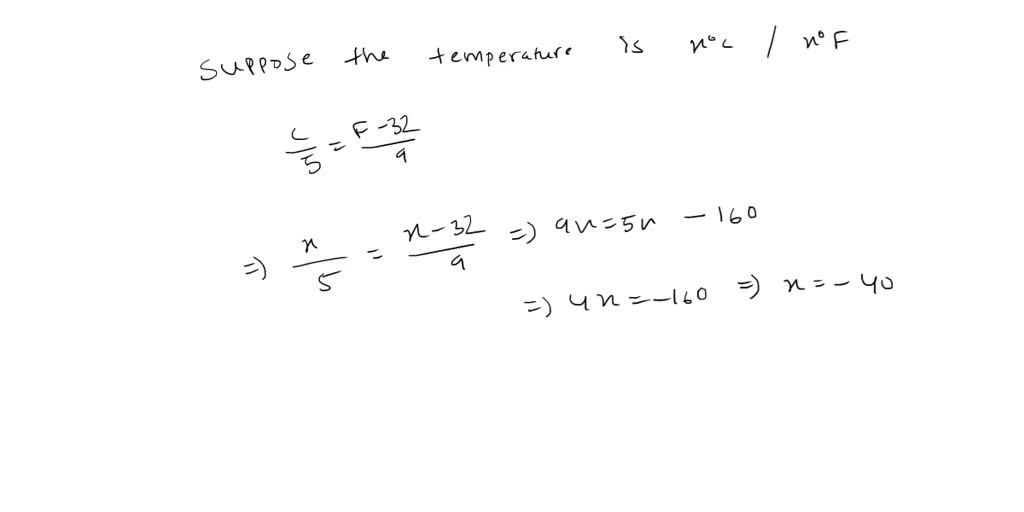 Suppose the temperature is x°C / x°F
C/5 = F-32/9
=) x/5 = x-32/9 =) 9x=5x - 160
=) 4x=-160 =) x=-40